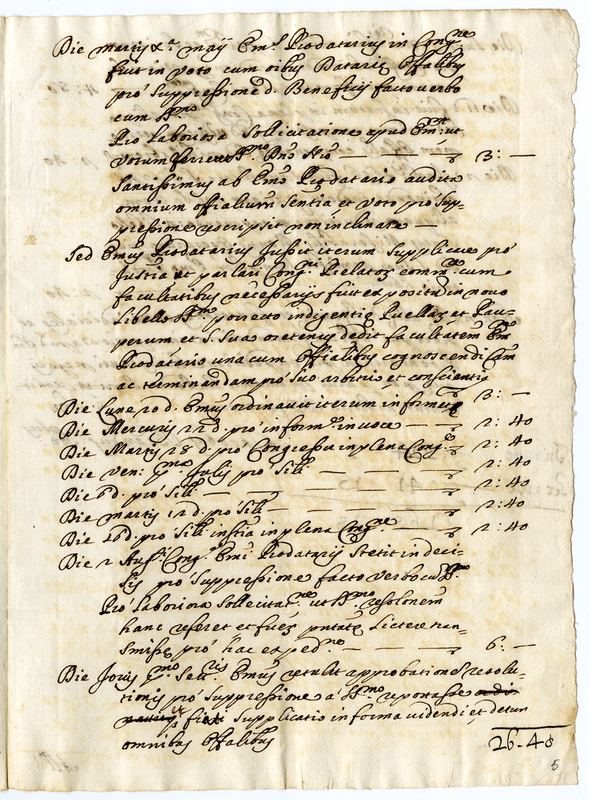 Die martis &ª. maÿ Emˢ Prodatarius in Congⁿᵉ
fuit in voto cum oibus Datariȩ Offalibus
pró Suppressione d. Beneficÿ facto verbo
cum Sᵐᵒ
Pro Laboriosa Sollicitatione apud Emᵘᵐ ut
votum ferret Sᵐᵒ Dnó Nró — — — 3: —
Santissimus ab Emó Prodatario audita
omnium offialium Sentia et voto pró Sup-
pressione rescripsit non inclinare —
Sed Emús Prodatarius Jussit iterum Supplicare pró
Justia et parlari Congⁿⁱ Prelatoȝ comm cum
facultatibus necessarÿs fuit expositu in novo
Libello Sᵐᵒ porrecto indigentiȩ Puellaȝ et Pau-
perum et S. Sua oretenus dedit facultatem Emó
Prodatario una cum Offialibus cognoscendi Cam
ac terminandam pró Suo arbitrio et conscientia
Die Lune 20 d. Emús ordinavit iterum informetur 3: —
Die Mercurÿ 22 d. pró informⁿᵉ in voce — — 2: 40
Die Martis 28 d. pró Congressu in plena Congⁿᵉ — 2: 40
Die Ven: pᵐᵃ Julÿ pró Sili — — — 2: 40
Die 8 d. pró Sili — — — — 2: 40
Die martis 12 d. pro Sili — — — 2: 40
Die 26 d. pró Sili instia in plena Congⁿᵉ — 2: 40
Die 2 Augˡⁱ Congⁿᵉ Emi Prodatarÿ Stetit in deci-
sis pró Suppressione facto verbo cu Sᵐᵒ
Pró Laboriosa Sollecitatⁿᵉ ut Sᵐᵒ resolonem
hanc referet et fueȝ pntatȩ Lictere tran-
smissȩ pró hac expedⁿᵉ — — — 6: —
Die Jovis pᵐᵒ Setⁱˢ Emús retulit approbationeȝ resolu-
tionis pró Suppressione a Sᵐᵒ reportasse
fiat Supplicatio in forma videndi et detur
omnibus Offalibus
26-40
5